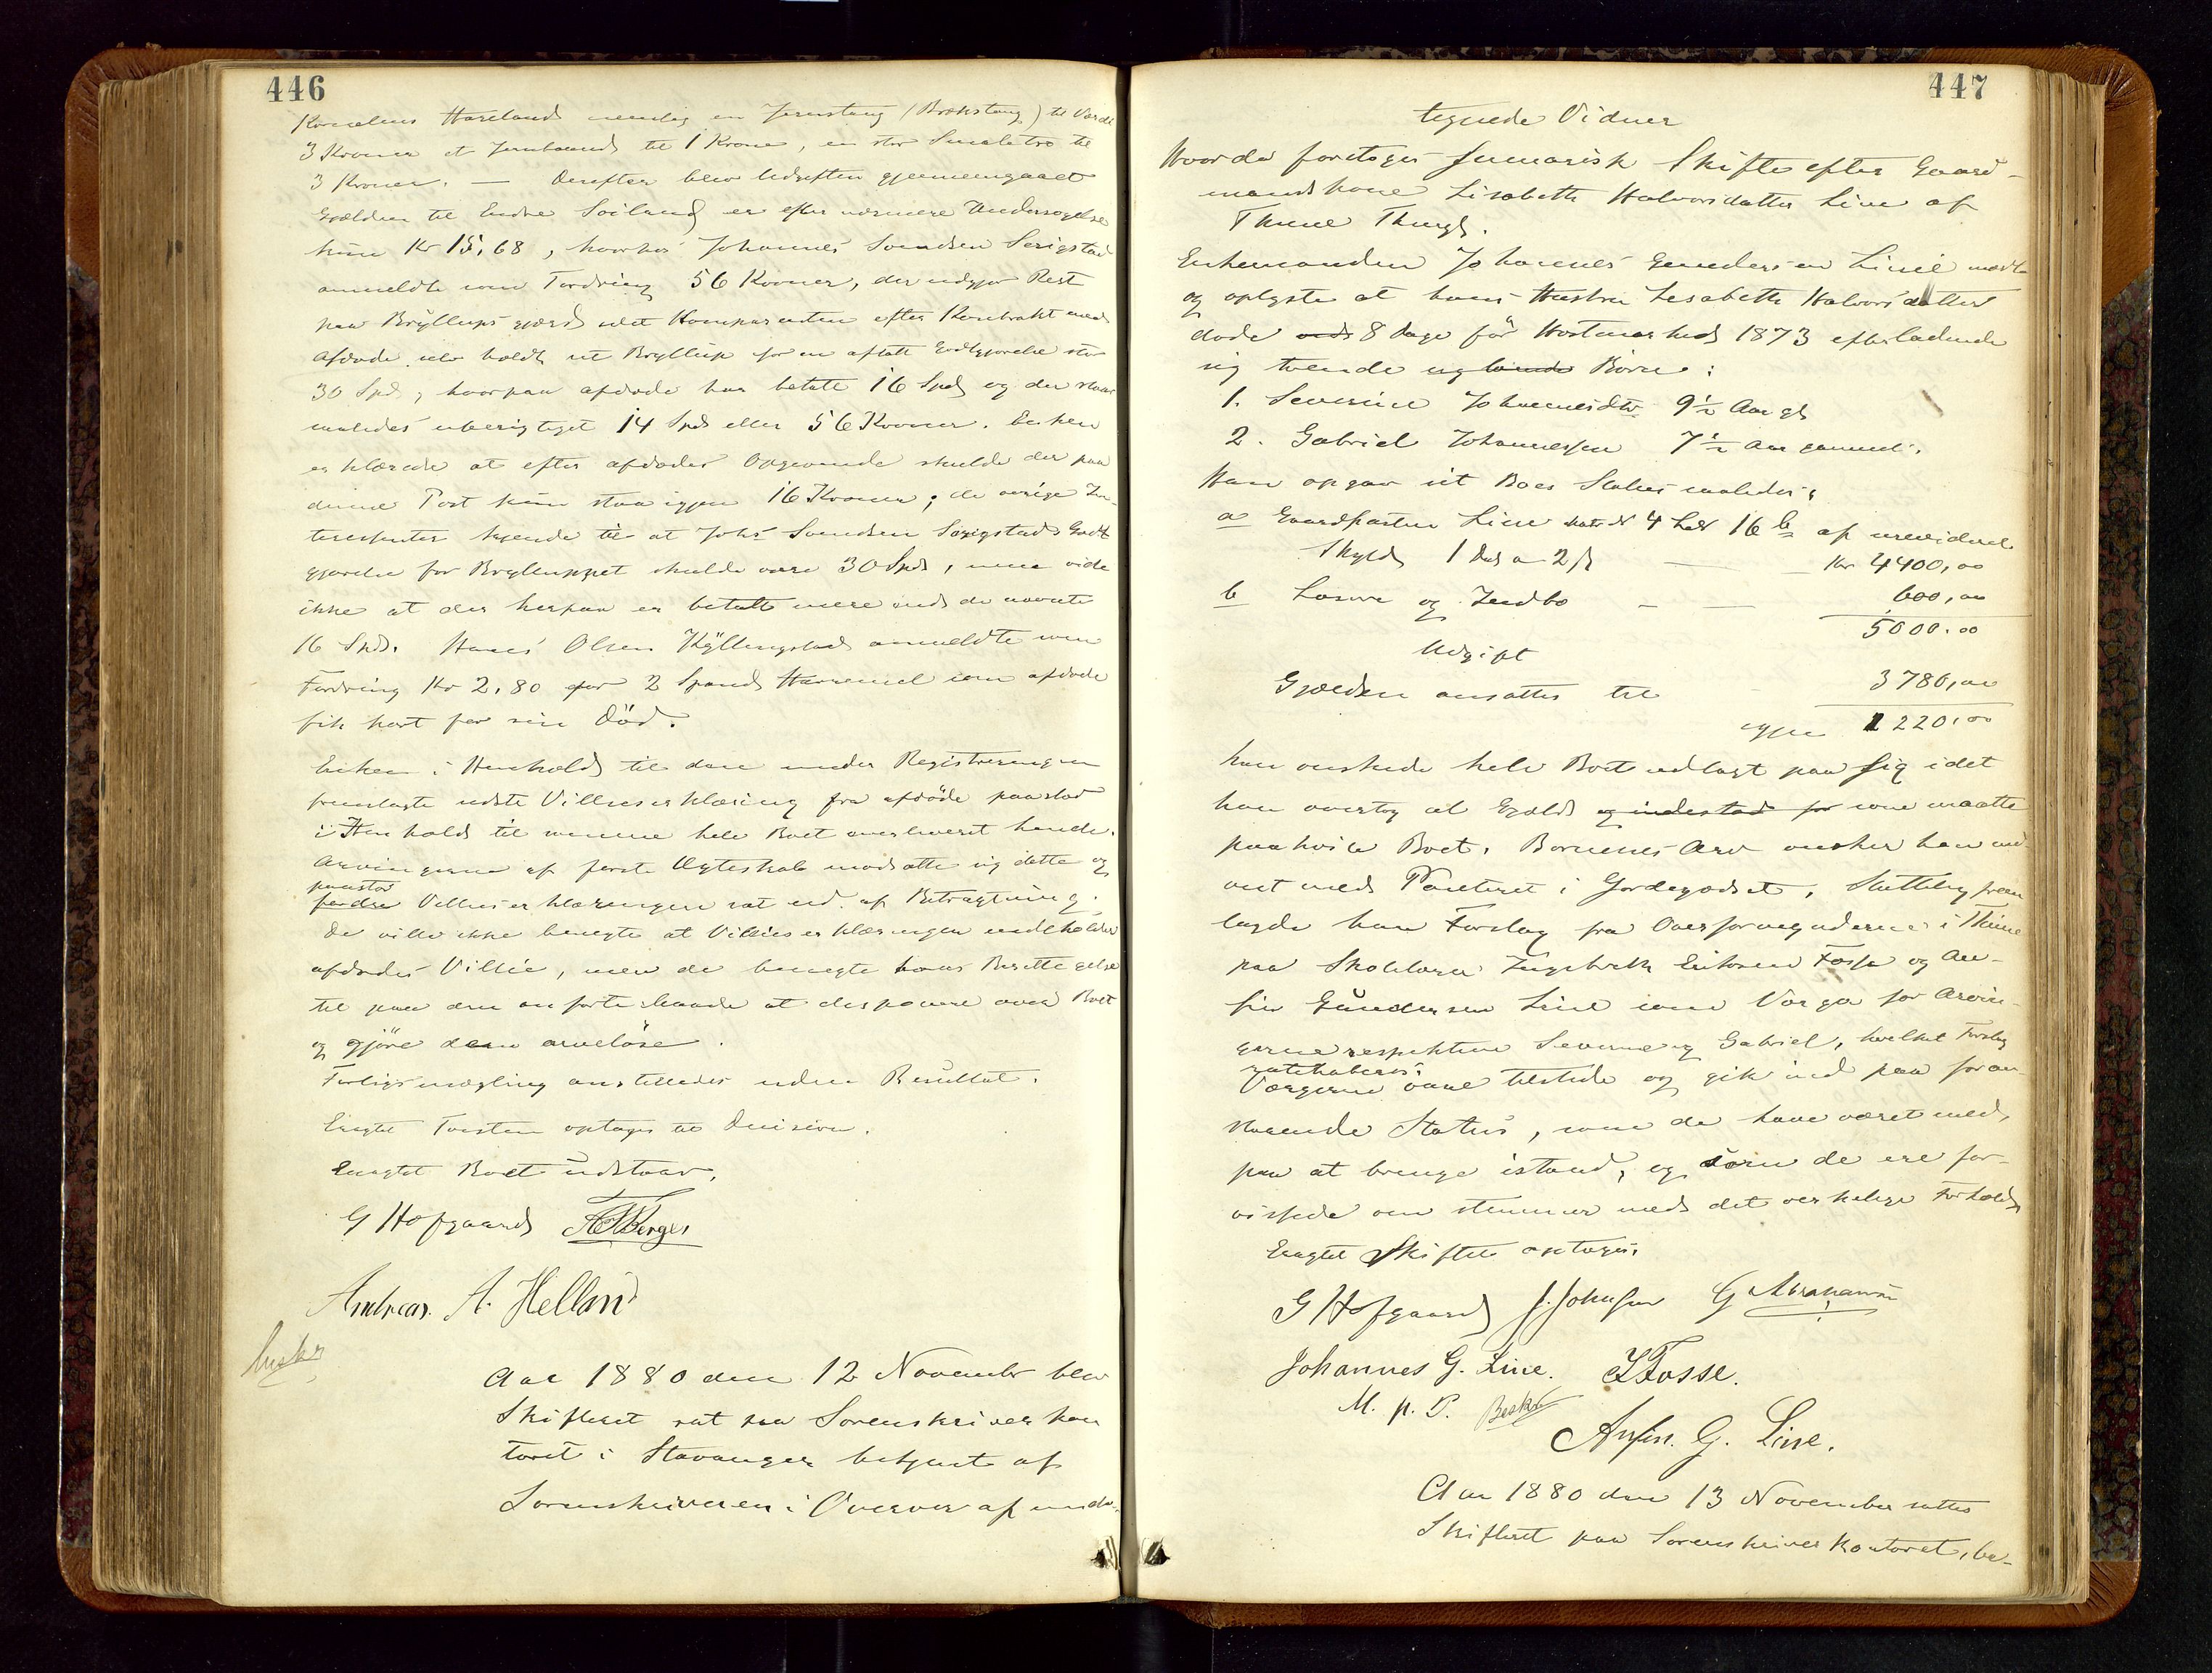 446
Kornelius Harelands nemlig en Jernstang (Brækstang) til Værdi
3 Kroner et Jernbaand til 1 Krone, en stor til
3 Kroner. — Derefter blev Udgiften gjennemgaaet
Gjælden til Endre Soiland er efter nærmere Undersøgelse
kun Kr 15,68, hvorhos Johannes Svendsen Serigstad
anmeldte som Fordring 56 Kroner, der udgjør Rest
paa Bryllups idet Komparenten efter Kontrakt med
Afdøde holdt et Bryllup for en aftalt Godtgjørelse stor
30 Spd, hvorpaa afdøde har betalt 16 Spd og der staar
saaledes uberigtiget 14 Spd eller 56 Kroner. Enken
erklærede at efter afdødes Opgivende skulde der paa
denne Post kun staa igjen 16 Kroner; de øvrige In-
teressenter til at Johs Svendsen Serigstads Godt
gjørelse for Brylluppet skulde være 30 Spd, men vide
ikke at der herpaa er betalt mere end de nævnte
16 Spd. Hans Olsen Kyllingstad anmeldte som
Fordring Kr 2,80 for 2 Spand Havremel som afdøde
fik kort før sin Död.
Enken i Henhold til den under Registreringen
fremlagte sidste Villieserklæring fra afdøde paastod
i Henhold til samme hele Boet overleveret hende.
Arvingerne af første Ægteskab modsatte sig dette og
paastod
fordre Villieserklæringen sat ud af Betragtning.
De ville ikke benegte at Villieserklæringen indeholder
afdødes Villie, men de benegte hans Berettigelse
til paa den anførte Maade at disponere over Boet
og gjöre dem arvelöse.
Forligsmægling anstilledes uden Resultat.
Eragtet Tvisten optages til Decision.
Eragtet Boet udstaar.
G Hofgaard A T Berges
Andreas A. Helland
beskr
Aar 1880 den 12 November blev
Skifteret sat paa Sorenskriverkon
toret i Stavanger betjent af
Sorenskriveren i Overvær af under-
447
tegnede Vidner
Hvorda foretoges summarisk Skifte efter Gaard-
mandskone Lisabeth Halvorsdatter Line af
Thime Thingl.
Enkemanden Johannes Gundersen Line mødte
og oplyste at hans Hustru Lisabeth Halvorsdatter
døde 8 Dage för Høstmarked 1873 efterladende
sig tvende Börn:
1. Severine Johannesdtr 9½ Aar gl
2. Gabriel Johannessen 7½ Aar gammel.
Han opgav sit Boes Status saaledes:
a Gaardparten Line Matr N 4 16 b af urevideret
Skyld 1 Dal 2 ß — Kr 4400,00
b Løsøre og Indbo — — 600,00
5000,00
Udgift
Gjælden ansattes til 3780,00
igjen 1220,00
han ønskede hele Boet udlagt paa sig idet
han overtog al Gjæld og indestod for som maatte
paahvile Boet. Børnenes Arv ønsker han
med Panteret i Jordegodset. Sluttelig frem
lagde han Forslag fra Overformynderne i Thime
paa Skolelærer Ingebreth Eriksen Fosse og An-
fin Gundersen Line som Værger for Arvin-
gerne respektive Severine og Gabriel, hvilket Forslag
ratihaberes.
Værgerne vare tilstede og gik ind paa foran
staaende Status, som de have været med
paa at bringe istand, og som de ere for-
vissede om stemmer med det virkelige Forhold
Eragtet Skiftet optages.
G Hofgaard J. Johnsen G Abrahamsen
Johannes G. Line. I Fosse.
M. p. P. Beskr
Anfin. G. Line.
Aar 1880 den 13 November sattes
Skifteret paa Sorenskriverkontoret, be-